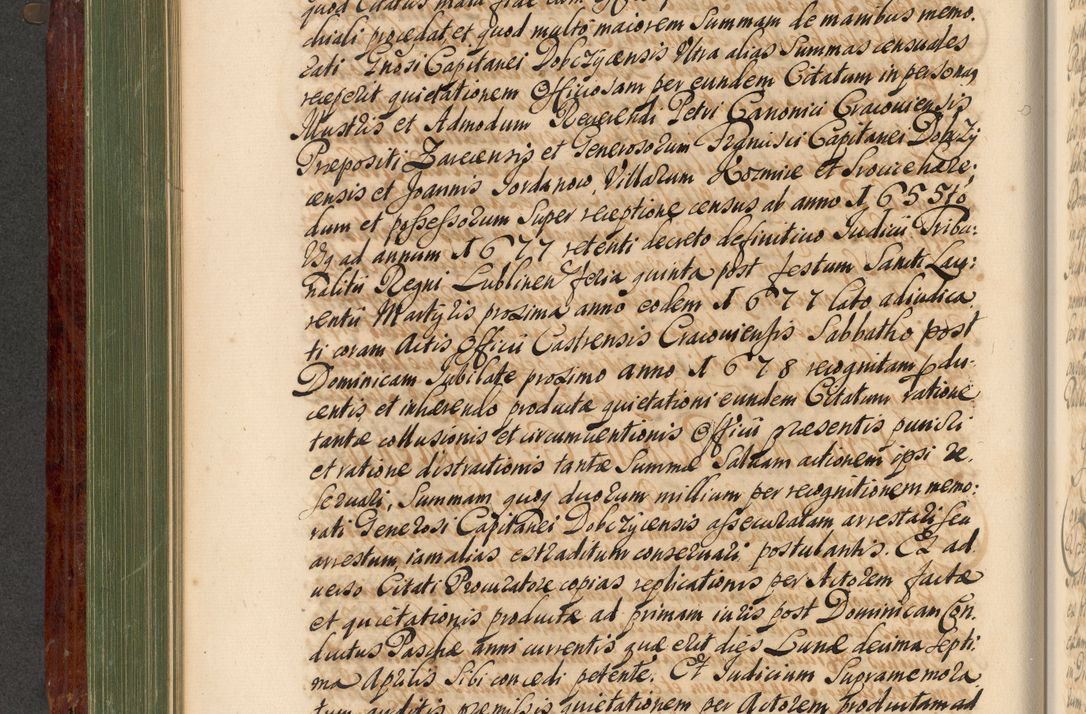 chiali procedat et quod multo maiorem Summam de manibus memo.
rati Gnosi Capitanei Dobczycensis Ultra alias Summas censuales
receperit quietationem Officiosam per eundem Citatum in personas
Illustris et Admodum Reverendi Petri Canonici Cracoviensis
Præpositi Zarecensis et Generosorum Capitanei Dobczy
censis et Joannis Jordanow, Villarum Kozmice et hære:
dum et possessorum Super receptione census ab anno 1655to
Usq ad annum 1677 retenti decreto definitivo Iudicii Tribu:
nalitii Regni Lublinen feria quinta post festum Sancti Lau:
rentii Martyris proxima anno eodem 1677 lato adiudica
ti coram Actis Officii Castrensis Cracoviensis Sabbatho post
Dominicam Jubilate proximo anno 1678 recognitam pdu:
centis et inhærendo productæ quietationi eundem Citatum ratione
tantæ collusionis et circumventionis Officii præsentis puniri
et ratione distractionis tantæ Summæ Salvam actionem ipsi re.
servari, Summam quoq duorum millium per recognitionem memo:
rati Generosi Capitanei Dobczycensis assecuratam arrestari seu
arrestum iam alias extraditum conservari postulantis. Et ad
verso Citati Procuratore copias replicationis per Actorem factæ
et quietationis productæ ad primam iuris post Dominicam Con.
ductus Paschæ anni currentis quæ erit dies Lunæ decima septi:
ma Aprilis Sibi concedi petente. Et Iudicium Supramemora
tum auditis præmissis quietationem per Actorem productam ad